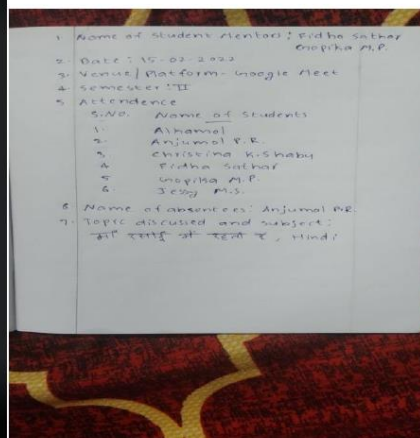 1 Name of Student Mentors : Ridha Sathar
Gopika M.P.
2. Date : 15-02-2022
3. Venue / Platform - Google Meet
4 Semester : II
5 Attendence
S.No. Name of Students
1. Alhamol
2. Anjumol P.R.
3 Christina K.Shabu
4 Ridha Sathar
5 Gopika M.P.
6. Jessy M.S.
6 Name of absentees : Anjumol P.R.
7. Topic discussed and subject :
माँ रसोई में रहती है , Hindi